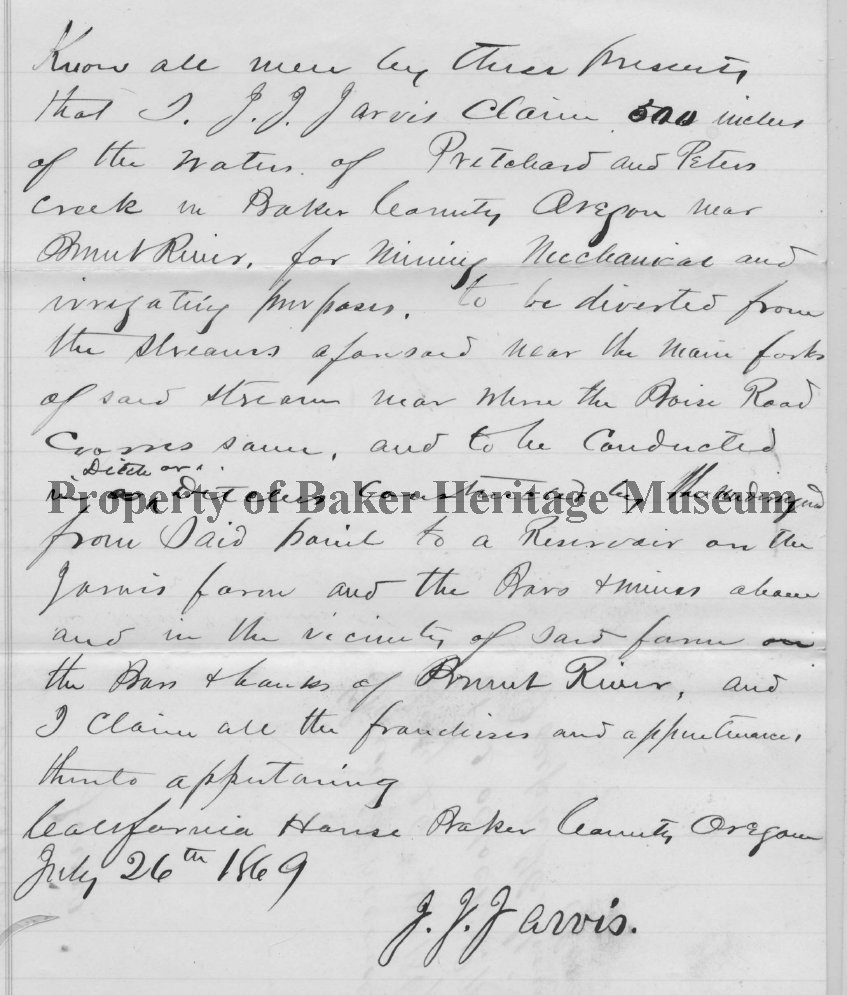 Know all men by these presents
that I. J. J. Jarvis Claim 500 inches
of the waters of Pritchard and Peters
creek in Baker County Oregon near
Burnt River, for Mining Mechanical and
irrigating purposes. to be diverted from
the streams aforesaid near the main forks
of said stream near where the Boise Road
crosses same, and to be conducted
Ditch or
in Ditches Constructed by the undersigned
Property of Baker Heritage Museum
from Said point to a Reservoir on the
Jarvis farm and the Bars & mines above
and in the vicinity of said farm on
the Bars & banks of Burnt River, and
I claim all the franchises and appurtenances
thereto appertaining
California House Baker County Oregon
July 26th 1869
J. J. Jarvis.